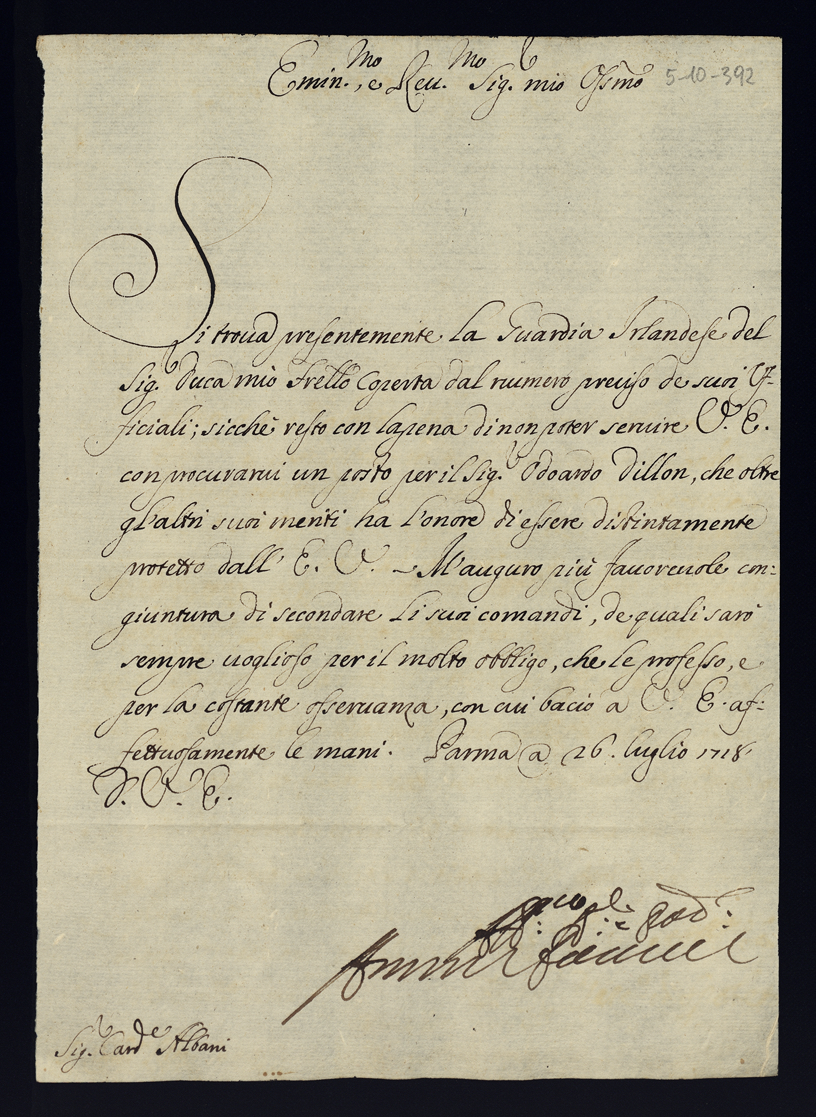 Emin.mo, e Reu.mo Sig.r mio Ossmo 5-10-392
Si troua presentemente la Guardia Irlandese del
Sig.r Duca mio Frello coperta dal numero preciso de suoi Uf-
ficiali; sicchè resto con la pena di non poter seruire V. E.
con procurarui un posto per il Sig.r Odoardo Dillon, che oltre
gl'altri suoi meriti ha l'onore di essere distintamente
protetto dall' E. V. - M'auguro più fauoreuole con=
giuntura di secondare li suoi comandi, de quali sarò
sempre uoglioso per il molto obbligo, che le professo, e
per la costante osseruanza, con cui bacio a V. E. af=
fettuosamente le mani. Parma a 26. luglio 1718
D. V. E.
Farnese
Sig.r Card.e Albani